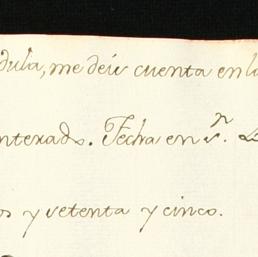 dula, me deis cuenta en la
nterado. Fecha en Sn. L
os y setenta y cinco.